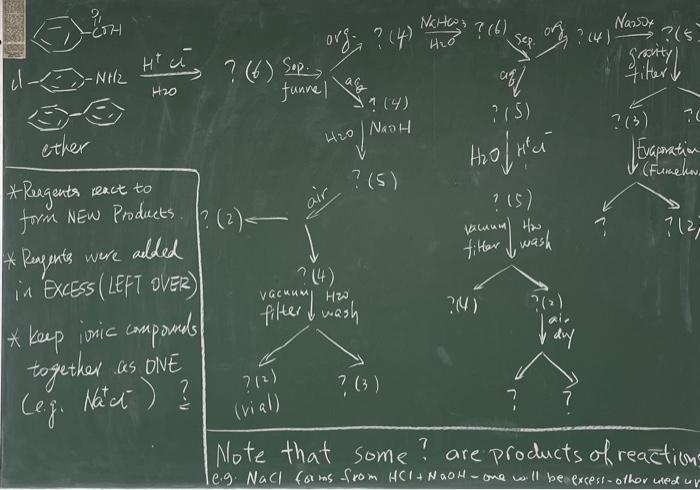 ?
C-OH
Cl- -NH2
ether
H+ Cl-
H2O
? (6)
Sep.
funnel
org.
? (4)
NaHCO3
H2O
? (6)
sep.
org
? (4)
Na2SO4
? (5)
gravity
filter
? (3)
Evaporation
(Fumehoo
?
? (2)
aq
? (4)
H2O
NaOH
? (5)
air
? (2)
? (4)
vacuum H2O
filter wash
? (2)
(vial)
? (3)
aq
? (5)
H2O
H+ Cl-
? (5)
vacuum H2O
filter wash
? (4)
? (2)
air
dry
?
?
* Reagents react to
form NEW Products.
* Reagents were added
in EXCESS (LEFT OVER)
* Keep ionic compounds
together as ONE
(e.g. Na+Cl-) ?
Note that some ? are products of reaction
(e.g. NaCl forms from HCl + NaOH - one will be excess - other used u